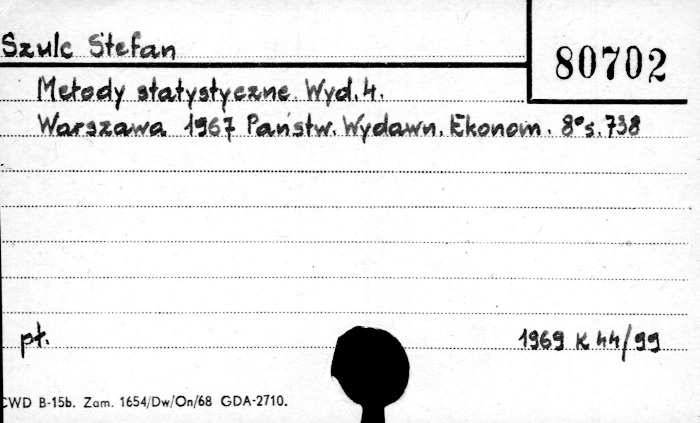 Szulc Stefan
80702
Metody statystyczne. Wyd. 4.
Warszawa 1967 Państw. Wydawn. Ekonom. 8° s. 738
pł.
1969 K 44/99
CWD B-15b. Zam. 1654/Dw/On/68 GDA-2710.